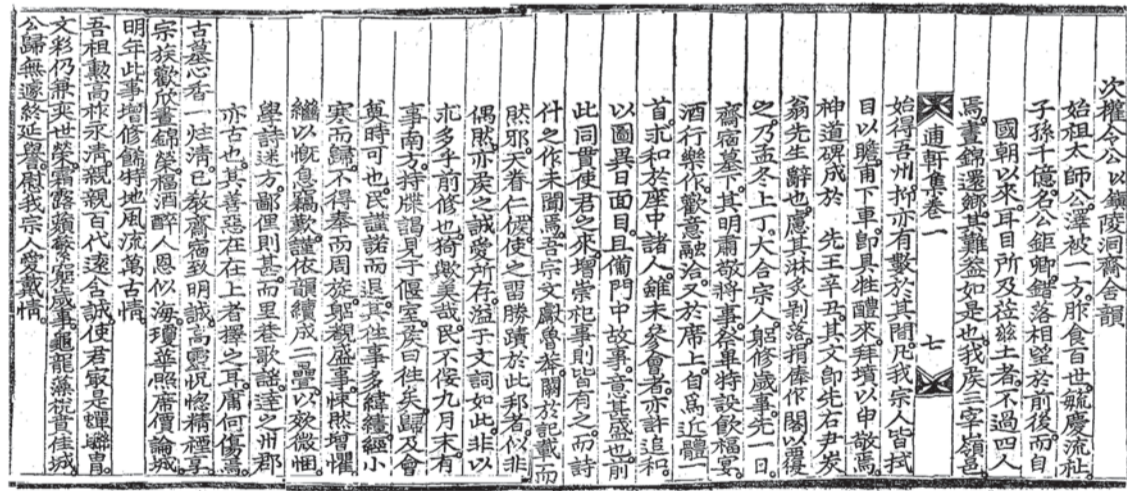 次權令公以鎭陵洞齋舍韻
始祖太師公澤被一方胙食百世毓慶流祉
子孫千億名公鉅卿錯落相望於前後而自
國朝以來耳目所及莅玆土者不過四人
焉晝錦還鄕其難盖如是也我侯三宰嶺邑
逋軒集卷一 七
始得吾州抑亦有數於其間凡我宗人皆拭
目以瞻甫下車卽具牲醴來拜墳以申敬焉
神道碑成於 先王辛丑其文卽先右尹炭
翁先生辭也慮其淋炙剝落捐俸作閣以覆
之乃孟冬上丁大合宗人躬修歲事先一日
齋宿墓下其明肅敬將事祭畢特設飮福宴
酒行樂作歡意融洽又於席上自爲近體一
首求和於座中諸人雖未參會者亦許追和
以圖異日面目且備門中故事意甚盛也前
此同貫使君之來增崇祀事則皆有之而詩
什之作未聞焉吾宗文獻魯莽闕於記載而
然邪天眷仁侯使之留勝蹟於此邦者似非
偶然亦侯之誠愛所存溢于文詞如此非以
求多乎前修也猗歟美哉民不佞九月末有
事南方持牒謁見于偃室侯曰往矣歸及會
奠時可也民謹諾而退其往事多緯繣經小
寒而歸不得奉而周旋躬覩盛事悚然增懼
繼以慨息竊歎謹依韻續成二疊以效微悃
學詩迷方鄙俚則甚而里巷歌謠達之州郡
亦古也其善惡在在上者擇之耳庸何傷焉
古墓心香一炷淸已敎齋宿致明誠高靈怳惚精禋享
宗族歡欣晝錦榮福酒醉人恩似海瓊華照席價論城
明年此事增修飾特地風流萬古情
吾祖勳高祚永淸親親百代遂合誠使君最是蟬聯冑
文彩仍兼奕世榮霜露蘋蘩宛歲事龜龍藻梲賁佳城
公歸無遽終延譽慰我宗人愛戴情